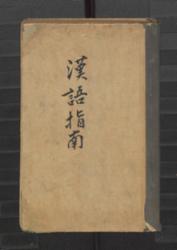 漢語指南